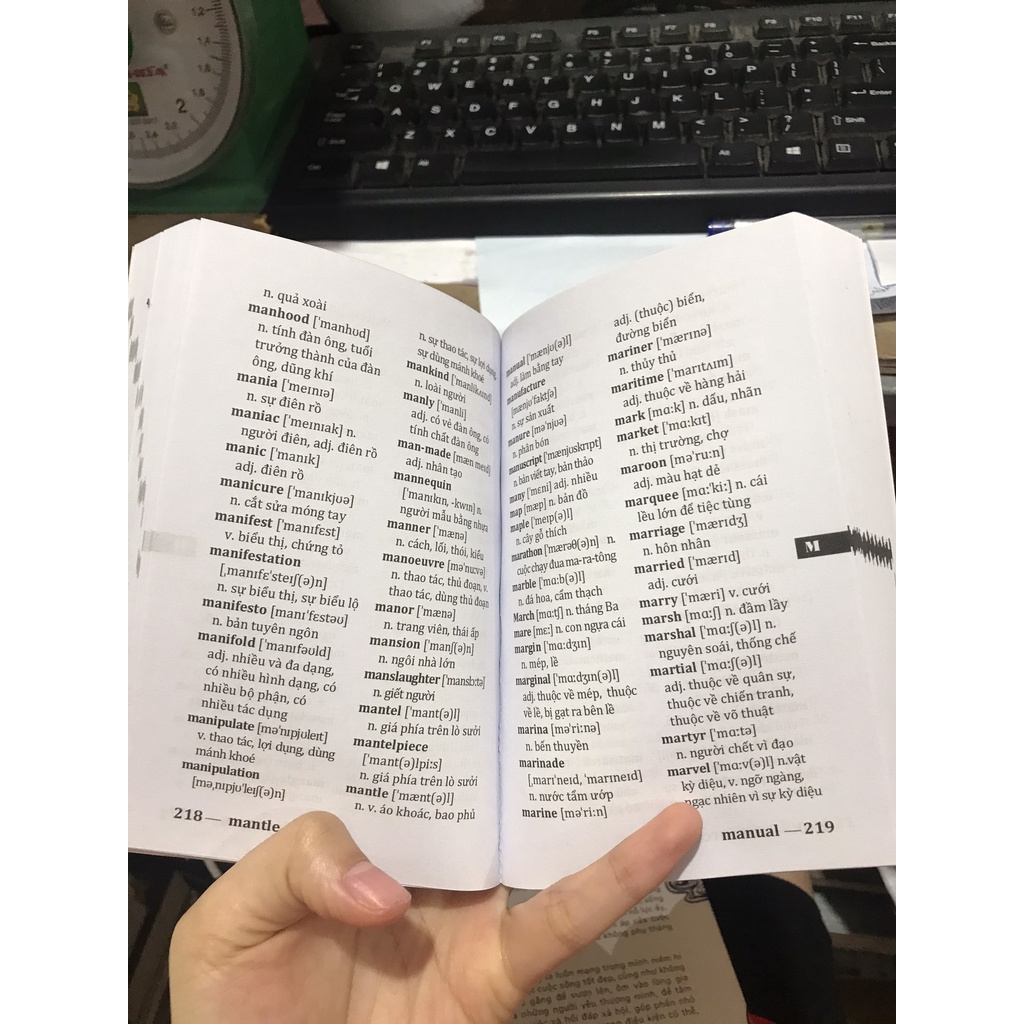 n. quả xoài
manhood ['manhʊd]
n. tính đàn ông, tuổi
trưởng thành của đàn
ông, dũng khí
mania ['meɪnɪə]
n. sự điên rồ
maniac ['meɪnɪak] n.
người điên, adj. điên rồ
manic ['manɪk]
adj. điên rồ
manicure ['manɪkjʊə]
n. cắt sửa móng tay
manifest ['manɪfɛst]
v. biểu thị, chứng tỏ
manifestation
[ˌmanɪfɛ'steɪʃ(ə)n]
n. sự biểu thị, sự biểu lộ
manifesto [manɪ'fɛstəʊ]
n. bản tuyên ngôn
manifold ['manɪfəʊld]
adj. nhiều và đa dạng,
có nhiều hình dạng, có
nhiều bộ phận, có
nhiều tác dụng
manipulate [mə'nɪpjʊleɪt]
v. thao tác, lợi dụng, dùng
mánh khoé
manipulation
[məˌnɪpjʊ'leɪʃ(ə)n]
n. sự thao tác, sự lợi dụng,
sự dùng mánh khoé
mankind [man'kʌɪnd]
n. loài người
manly ['manli]
adj. có vẻ đàn ông, có
tính chất đàn ông
man-made [mæn meɪd]
adj. nhân tạo
mannequin
['manɪkɪn, -kwɪn] n.
người mẫu bằng nhựa
manner ['mænə]
n. cách, lối, thói, kiểu
manoeuvre [mə'nuːvə]
n. thao tác, thủ đoạn, v.
thao tác, dùng thủ đoạn
manor ['mænə]
n. trang viên, thái ấp
mansion ['manʃ(ə)n]
n. ngôi nhà lớn
manslaughter ['manslɔːtə]
n. giết người
mantel ['mant(ə)l]
n. giá phía trên lò sưởi
mantelpiece
['mant(ə)lpiːs]
n. giá phía trên lò sưởi
mantle ['mænt(ə)l]
n. v. áo khoác, bao phủ
218— mantle
manual ['mænjʊ(ə)l]
adj. làm bằng tay
manufacture
[mænjʊ'faktʃə]
n. sự sản xuất
manure [mə'njʊə]
n. phân bón
manuscript ['mænjʊskrɪpt]
n. bản viết tay, bản thảo
many ['mɛni] adj. nhiều
map [mæp] n. bản đồ
maple ['meɪp(ə)l]
n. cây gỗ thích
marathon ['mærəθ(ə)n] n.
cuộc chạy đua ma-ra-tông
marble ['mɑːb(ə)l]
n. đá hoa, cẩm thạch
March [mɑːtʃ] n. tháng Ba
mare [mɛː] n. con ngựa cái
margin ['mɑːdʒɪn]
n. mép, lề
marginal ['mɑːdʒɪn(ə)l]
adj. thuộc về mép, thuộc
về lề, bị gạt ra bên lề
marina [mə'riːnə]
n. bến thuyền
marinade
[ˌmarɪ'neɪd, 'marɪneɪd]
n. nước tẩm ướp
marine [mə'riːn]
adj. (thuộc) biển,
đường biển
mariner ['mærɪnə]
n. thủy thủ
maritime ['marɪtʌɪm]
adj. thuộc về hàng hải
mark [mɑːk] n. dấu, nhãn
market ['mɑːkɪt]
n. thị trường, chợ
maroon [mə'ruːn]
adj. màu hạt dẻ
marquee [mɑː'kiː] n. cái
lều lớn để tiệc tùng
marriage ['mærɪdʒ]
n. hôn nhân
married ['mærɪd]
adj. cưới
marry ['mæri] v. cưới
marsh [mɑːʃ] n. đầm lầy
marshal ['mɑːʃ(ə)l] n.
nguyên soái, thống chế
martial ['mɑːʃ(ə)l]
adj. thuộc về quân sự,
thuộc về chiến tranh,
thuộc về võ thuật
martyr ['mɑːtə]
n. người chết vì đạo
marvel ['mɑːv(ə)l] n.vật
kỳ diệu, v. ngỡ ngàng,
ngạc nhiên vì sự kỳ diệu
manual —219
M